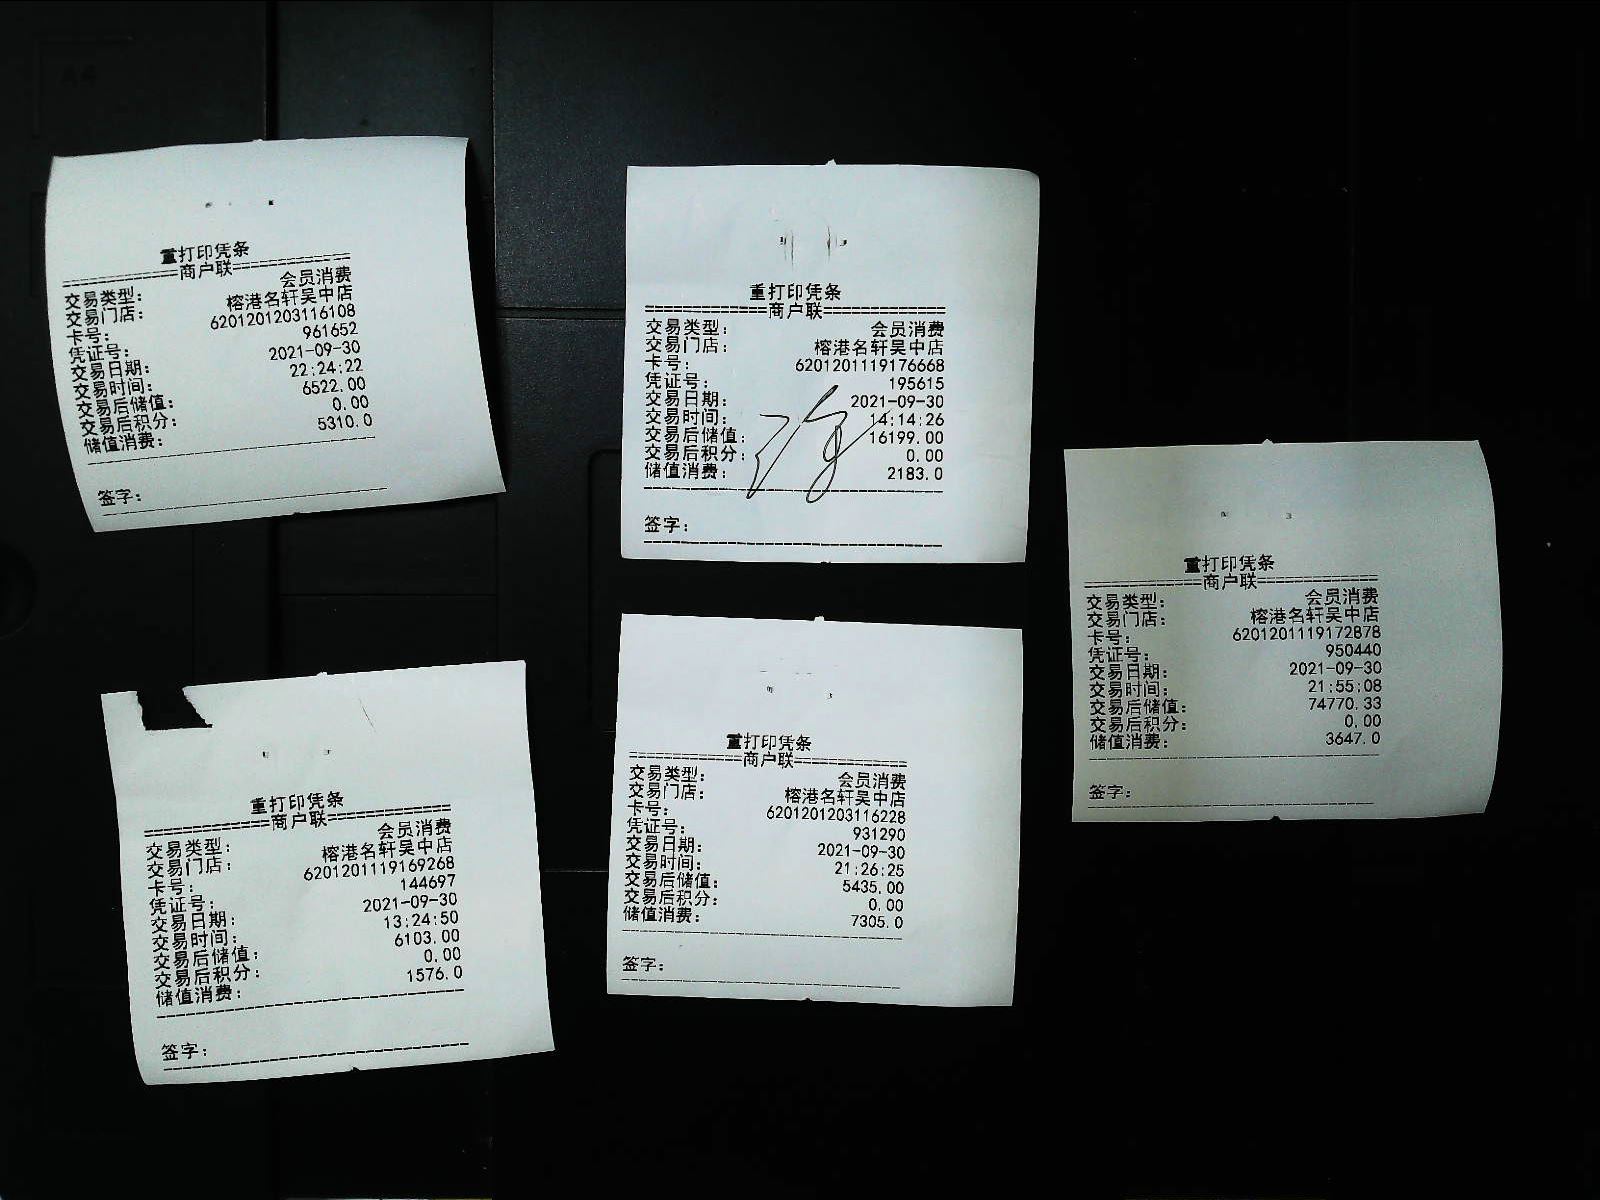 重打印凭条
=============商户联=============
交易类型： 会员消费
交易门店： 榕港名轩吴中店
卡号： 6201201203116108
凭证号： 961652
交易日期： 2021-09-30
交易时间： 22:24:22
交易后储值： 6522.00
交易后积分： 0.00
储值消费： 5310.0
签字：
重打印凭条
=============商户联=============
交易类型： 会员消费
交易门店： 榕港名轩吴中店
卡号： 6201201119176668
凭证号： 195615
交易日期： 2021-09-30
交易时间： 14:14:26
交易后储值： 16199.00
交易后积分： 0.00
储值消费： 2183.0
签字：
重打印凭条
=============商户联=============
交易类型： 会员消费
交易门店： 榕港名轩吴中店
卡号： 6201201119172878
凭证号： 950440
交易日期： 2021-09-30
交易时间： 21:55:08
交易后储值： 74770.33
交易后积分： 0.00
储值消费： 3647.0
签字：
重打印凭条
=============商户联=============
交易类型： 会员消费
交易门店： 榕港名轩吴中店
卡号： 6201201119169268
凭证号： 144697
交易日期： 2021-09-30
交易时间： 13:24:50
交易后储值： 6103.00
交易后积分： 0.00
储值消费： 1576.0
签字：
重打印凭条
=============商户联=============
交易类型： 会员消费
交易门店： 榕港名轩吴中店
卡号： 6201201203116228
凭证号： 931290
交易日期： 2021-09-30
交易时间： 21:26:25
交易后储值： 5435.00
交易后积分： 0.00
储值消费： 7305.0
签字：